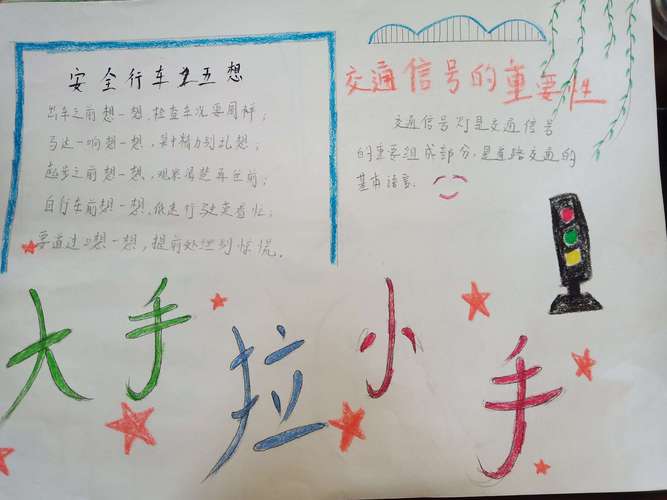 安全行车五想
出车之前想一想,检查车况要周祥;
马达一响想一想,集中精力别乱想;
起步之前想一想,观来清楚再在前;
自行车前想一想,低速行驶莫着忙;
要道过口想一想,提前处理别惊慌。
交通信号的重要性
交通信号灯是交通信号
的重要组成部分,是道路交通的
基本语言。
大手拉小手